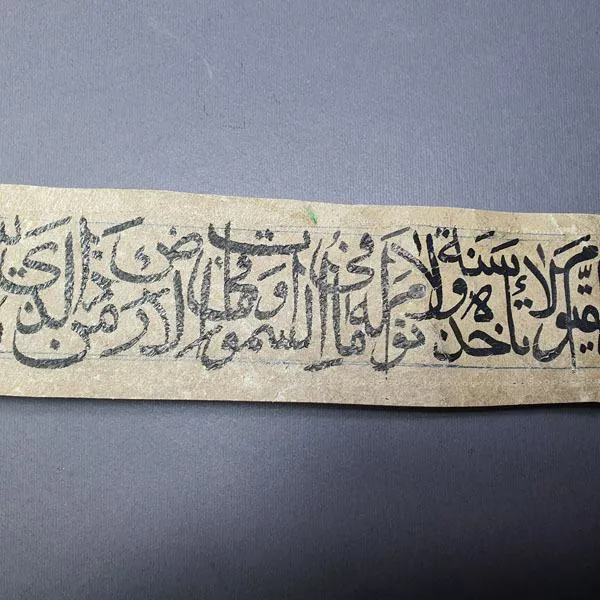 القيوم لا تأخذه سنة ولا نوم له ما في السموات وما في الارض من ذا الذي